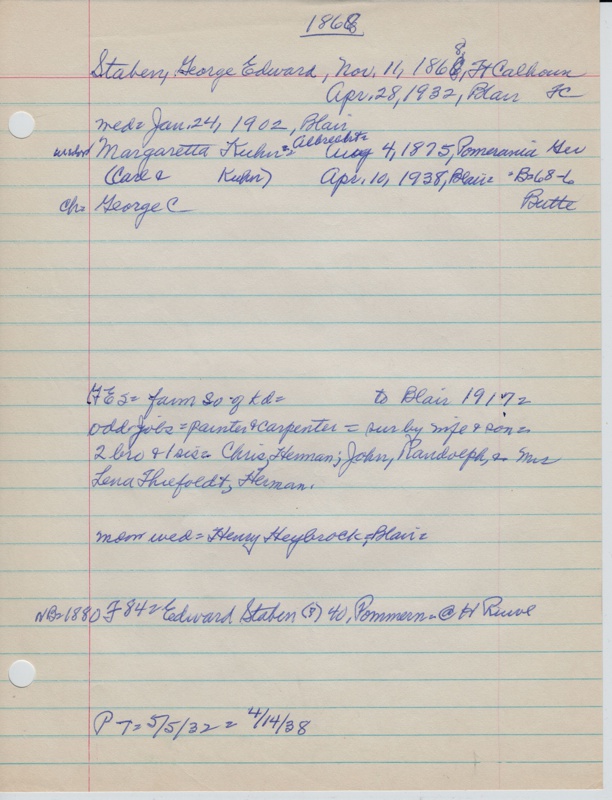 1868
Staben, George Edward, Nov. 11, 1868, Ft Calhoun
Apr. 28, 1932, Blair FC
med= Jan. 24, 1902, Blair
Margaretta Kuhn= Albrecht= Aug 4, 1875, Pomerania Ger
(Carl & Kuhn) Apr. 10, 1938, Blair= B=68-6
ch= George C Butte
GES= farm so of Kd= to Blair 1917=
odd jobs= painter & carpenter = sur by wife & son=
2 bro & 1 sis= Chris, Herman; John, Randolph, & Mrs
Lena Thiefoldt, Herman.
mom wed= Henry Heybrock, Blair=
NB=1880 F 84= Edward Staben (?) 40, Pommern= @ H
PT= 5/5/32 = 4/14/38